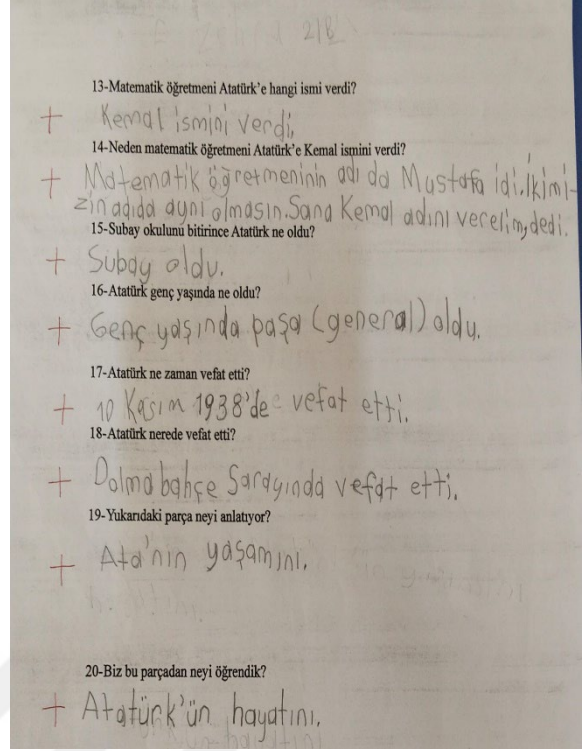 21B
13-Matematik öğretmeni Atatürk'e hangi ismi verdi?
+ Kemal ismini verdi.
14-Neden matematik öğretmeni Atatürk'e Kemal ismini verdi?
+ Matematik öğretmeninin adı da Mustafa idi. İkimi-
zin adıda aynı olmasın. Sana Kemal adını verelim, dedi.
15-Subay okulunu bitirince Atatürk ne oldu?
+ Subay oldu.
16-Atatürk genç yaşında ne oldu?
+ Genç yaşında paşa (general) oldu.
17-Atatürk ne zaman vefat etti?
+ 10 Kasım 1938'de vefat etti.
18-Atatürk nerede vefat etti?
+ Dolmabahçe Sarayında vefat etti.
19-Yukarıdaki parça neyi anlatıyor?
+ Ata'nin yaşamını.
20-Biz bu parçadan neyi öğrendik?
+ Atatürk'ün hayatını.